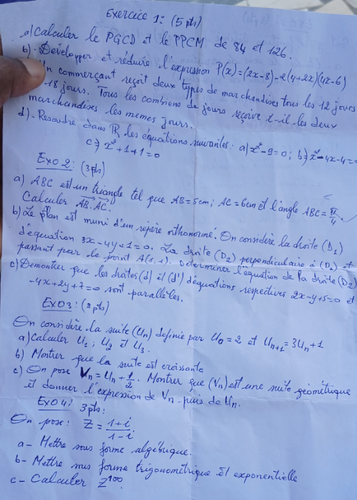 Exercice 1: (5 pts)
a) Calculer le PGCD et le PPCM de 84 et 126.
b) - Développer et réduire l'expression P(x) = (2x-8)-2(4+2x)(4x-6)
Un commerçant reçoit deux types de marchandises tous les 12 jours
18 jours. Tous les combiens de jours reçoive t-il les deux
marchandises les mêmes jours.
d) - Resoudre dans R les équations suivantes: a) x²-9=0; b) x²-4x-4=0
c) x²+1+1=0
EXO 2: (3pts)
a) ABC est un triangle tel que AB=5cm; AC=6cm et l'angle ABC=π/4
Calculer AB.AC.
b) Le plan est muni d'un repère orthonormé. On considère la droite (D₁)
d'équation 3x-4y+1=0. La droite (D₂) perpendiculaire à (D₁) et
passant par le point A(1,1). Déterminer l'équation de la droite (D₂)
c) Démontrer que les droites (d) et (d') d'équations respectives 2x-y+5=0 et
-4x+2y+7=0 sont parallèles.
EXO3: (3pts)
On considère la suite (Un) définie par U₀=2 et Un+1=3Un+1
a) Calculer U₁, U₂ et U₃.
b) Montrer que la suite est croissante
c) On pose Vn=Un+1/2. Montrer que (Vn) est une suite géométrique
et donner l'expression de Vn puis de Un.
EXO4: 3pts:
On pose: Z=1+i/1-i.
a- Mettre sous forme algébrique.
b- Mettre sous forme trigonométrique et exponentielle
c- Calculer Z¹⁰⁰.